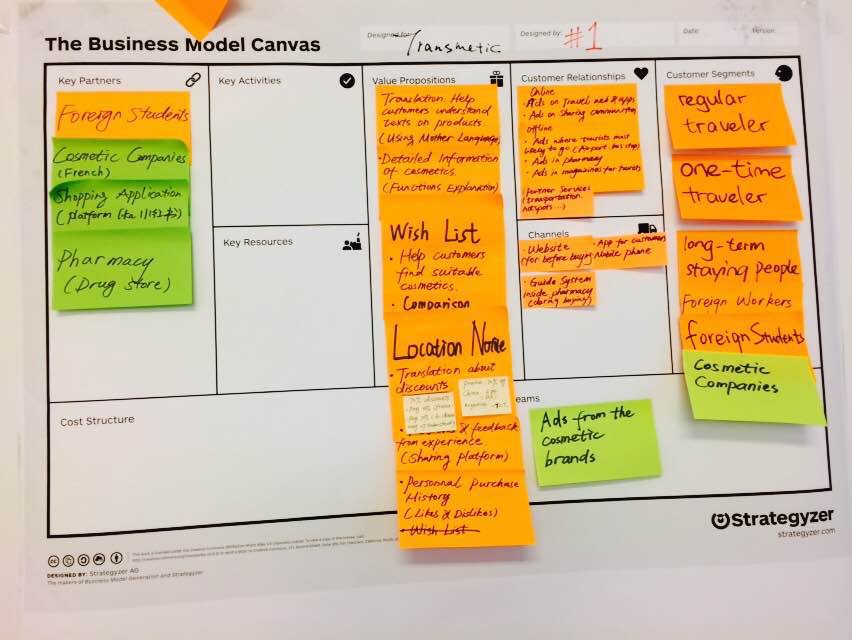 The Business Model Canvas
Designed for:
Transmetic
Designed by:
#1
Date:
Version:
Key Partners
Foreign Students
Cosmetic Companies
(French)
Shopping Application
(Platform like
Pharmacy
(Drug store)
Key Activities
Key Resources
Value Propositions
Translation. Help
customers understand
texts on products.
(Using Mother Language)
· Detailed Information
of cosmetics.
(Functions Explanation)
Wish List
· Help customers
find suitable
cosmetics.
· Comparison
Location Notice
· Translation about
discounts.
& feedback
from experience
(Sharing platform)
· Personnal Purchase
History
(Likes & Dislikes)
· Wish List
Customer Relationships
Online
· Ads on Travel web & apps
· Ads on Sharing communities
offline
· Ads where tourists most
likely to go (Airport bus stop)
· Ads in pharmacy
· Ads in magazines for tourists
Partner Services
(transportation.
Adspots...)
Channels
· Website
(for before buying)
· App for customers
Mobile phone
· Guide System
inside pharmacy
(during buying)
Customer Segments
regular
traveler
one-time
traveler
long-term
staying people
Foreign Workers
foreign Students
Cosmetic
Companies
Cost Structure
eams
Ads from the
cosmetic
brands
Strategyzer
strategyzer.com
DESIGNED BY: Strategyzer AG
The makers of Business Model Generation and Strategyzer